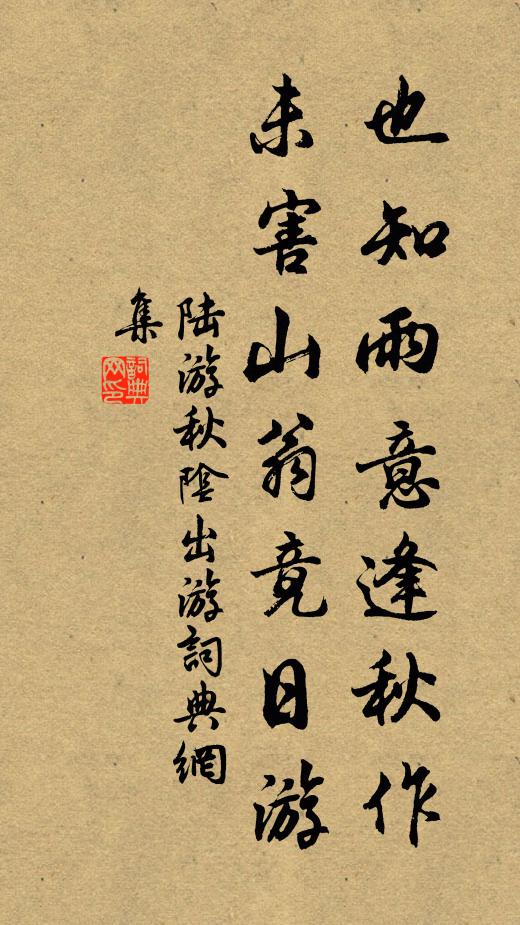 也知雨意逢秋作
未害山翁竟日游
陆游秋陰出游詞典網
集
詞典
网印